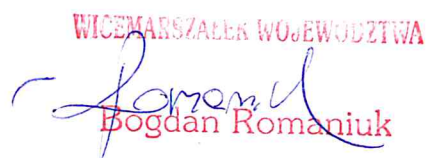 WICEMARSZAŁEK WOJEWÓDZTWA
Bogdan Romaniuk